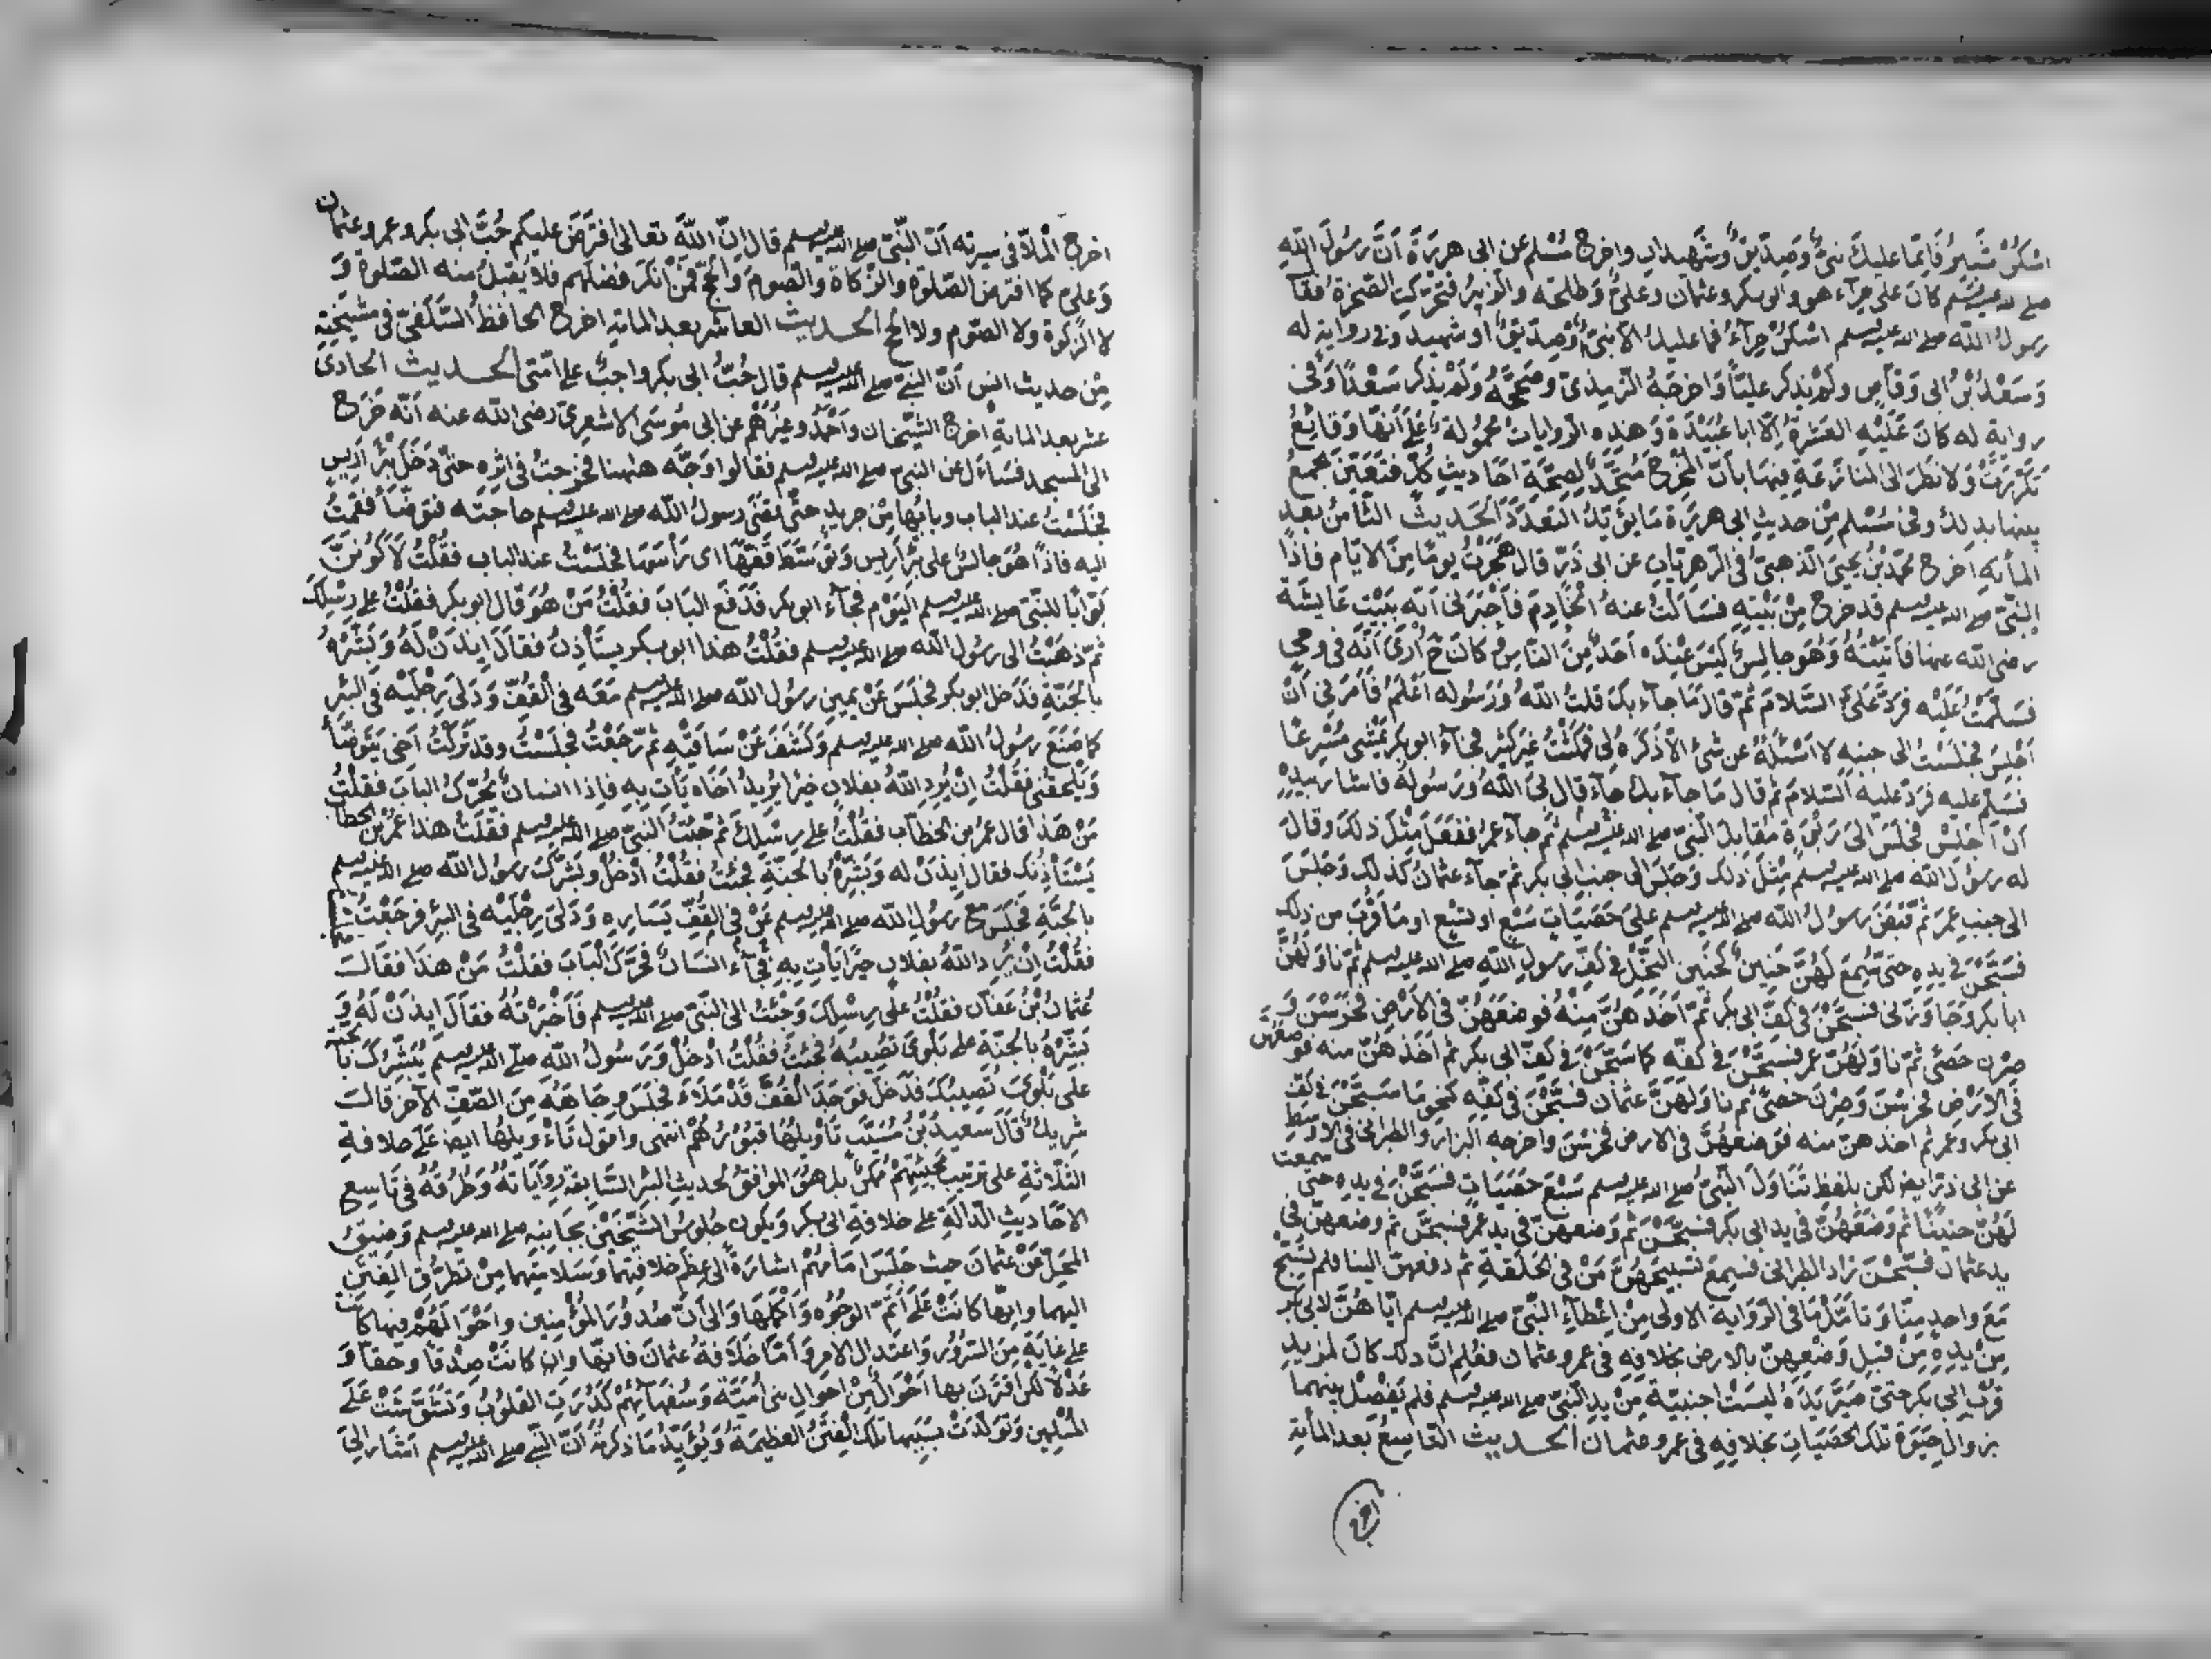 اسكن ثبير فانما عليك نبيٌّ وَصِدّيقٌ وشَهِيدانِ واخرج مُسْلم عن ابى هريرَةَ أنّ رسُولَ اللهِ
صلے لله عليه وسلم كانَ على حِرَآء هو وابو بكر وعثمان وعلىّ وَطلحته والزبيرُ فتحرّكت الصّخرةُ فقاَ
رسولُ الله صلے الله عليه وسلم اسْكنْ حِرَآءُ فما عليك الّا نبىٌّ اوْصِدّيقٌ اوشهيد وفى روايةٍ له
وَسَعْدُ بْنُ ابى وَقاَصٍ ولم يذكر عليًّا وَاخرجَهُ الترمذىّ وصَحّحَهُ وَلَمْ يذكر سَعْدًا وَفى
روايةٍ له كانَ عَلَيْهِ العَشَرةُ اِلّا ابا عُبَيْدَةَ وَهذِهِ الرّواياتُ محمُولَةٌ عَلَى اَنّها وَقائِعُ
تَكَرّرَتْ وَلا نظَرَ الى المنازعَةِ فيها باَنّ المخْرجَ مُتّحِدٌ لصِحّةِ احَاديثِ كُلّ فتعَيّنَ الجمعُ
بينها بذلك وفى مُسْلم مِنْ حديثِ ابى هريرَةَ مَا يؤيّدُ التعدّدَ الحَديثُ الثامنُ بعد
المأئةِ اخرج محمّدُ بْنُ يحيىَ الذهبىّ فى الزهريّاتِ عن ابى ذَرّ قال هجّرْتُ يومًا مِنَ الايّام فاِذا
النّبىّ صلے الله عليه وسلم قد خرج مِنْ بَيْتِهِ فسَاَلتُ عنهُ الخَادِمَ فَاَخْبَرَنى اَنّه ببَيْتِ عَايشَة
رضى الله عنها فاَتَيْتُهُ وَهُوَ جالِسٌ لَيْسَ عِنْدَه اَحَدٌ مِنَ النّاسِ وكانّ حَ اُرَى اَنّهُ فى وحىٍ
فسَلّمْتُ عَلَيْهِ فرَدّ عَلَىّ السّلامَ ثمّ قالَ مَا جآءَ بك قلتُ اللهُ وَرَسُوله اَعْلمُ فَاَمَرَنى اَنْ
اَجْلِسَ فجلَسْتُ الى جنبِهِ لا اَسْئلهُ عن شئ الّا ذكَرَهُ لى فمكثتُ غيرَ كثيرٍ فجآءَ ابو بكر يَمْشى مُسْرعًا
فسَلّم عليهِ فرَدّ عليه السّلامَ ثم قال مَا جآءَ بك جَآءَ قال بىَ اللهُ وَرَسُولهُ فاشار بيدِهِ
اَنْ اجْلِسْ فجلَسَ الىَ رَبْوَةٍ مُقابلَ النبىّ صلے الله عليه وسلم ثمّ جآءَ عمرُ ففَعَلَ مِثْلَ ذلكَ وقالَ
له رسُولَ الله صلے الله عليه وسلم مِثلَ ذلك وَجلَسَ الى جنبِ ابى بكر ثمّ جآءَ عثمانُ كذلك وَجلَسَ
الى جنبِ عمرَ ثمّ قبَضَ رسولُ الله صلے الله عليه وسلم علىَ حَصَياتٍ سَبْعٍ او تسْعٍ او مَا قرُبَ من ذلك
فسَبّحْنَ فى يدِهِ حتىّ سُمِعَ لَهُنّ حَنِينٌ كحَنينِ النخلِ فى كفِّ رسولِ اللهِ صلے الله عليه وسلم ثمّ ناوَلهُنّ
ابا بكر وجَاوَزَنى فسَبّحْنَ فى كفّ ابى بكر ثمّ اَخَذَهُنّ مِنهُ فوضعَهُنّ فى الاَرْضِ فخرسْنَ وَ
صِرْنَ حَصًى ثمّ ناوَلَهُنّ عمرَ فسَبّحْنَ فى كفّه كما سَبّحْنَ فى كفّ ابى بكر ثم اخَذهُنّ منه فوضعهنّ
فى الاَرْضِ فخرسْنَ وَصِرْنَ حَصًى ثم ناوَلَهُنّ عثمانَ فسَبّحْنَ فى كفّهِ كنحوِ مَا سَبّحْنَ فى كفّ
ابى بكر وعمر ثم اخذهنّ منه فوضعهُنّ فى الارضِ فخرسْنَ واخرجه البزار والطبرانى فى الاوسَطِ
عن ابى ذرّ ايضا لكن بلفظِ تناوَلَ النّبىّ صلے الله عليه وسلم سَبْعَ حَصَيَاتٍ فسَبّحْنَ فى يدِهِ حتىّ سمعت
لَهُنّ حنينًا ثمّ وَضَعَهُنّ فى يد ابى بكر فسَبّحْنَ ثمّ وَضعهنّ فى يد عمرَ فسبحْنَ ثم وضعهنّ فى
يد عثمان فسَبّحْنَ زادَ الطبرانى فسَمِعَ تسْبيحَهُنّ مَنْ فى الحَلقةِ ثم دفعهنّ الينا فلم تسَبّحْ
مَعَ واحدٍ مِنّا وَتامّلْ مَا فى الرّوايةِ الاولى مِنْ اِعْطآءِ النّبىّ صلے الله عليه وسلم ايّاهُنّ لابى بكر
مِنْ يدِهِ مِنْ قبلِ وَضعِهنّ بالارض بخلافِهِ فى عمر وعثمان فعُلِمَ انّ ذلك كان لمزيدِ
قرْبِ ابى بكر حتىّ صَيّرَ يدَهُ ليسَتْ اجنبيّةً مِنْ يدِ النّبىّ صلے الله عليه وسلم فلم يَفْصِلْ بينهما
بزوالِ حَيَوةِ تلكَ الحَصَيَاتِ بخلافِهِ فى عمر وعثمانَ الحديث التاسِعُ بعد المأئةِ
اخرج
اخرج المُلّا فى سيرته اَنّ النّبىّ صلے الله عليه وسلم قال اِنّ اللهَ تعالى افترَضَ عليكم حُبّ ابى بكر وعمر وعثمان
وَعلىٍّ كما افترض الصّلوة والزكاة والصّومَ وَالحجّ فمَنْ انكرَ فضلهم فلا يُقبلُ منه الصّلوة وَ
لا الزكوة ولا الصّوم ولا الحج الحديث العاشر بعد المائةِ اخرج الحافظ السّلفىّ فى مشيَختِهِ
مِنْ حديث انس اَنّ النبىّ صلے الله عليه وسلم قال حُبّ ابى بكر واجبٌ على امّتى الحديث الحادى
عشر بعد المائةِ اخرج الشيخان واَحْمَدُ وغيرُهُم عن ابى مُوسَى الاشعرىّ رضى الله عنه اَنّه خَرَجَ
الى المسجد فسَاءلَ عن النبىّ صلے الله عليه وسلم فقالوا وَجّه ههنا فخرجتُ فى اثرِهِ حتىّ دَخَلَ بئرَ اَريس
فجَلَسْتُ عندَ الباب وبابُها مِنْ جريدٍ حتّى قضَى رسولُ الله صلے الله عليه وسلم حاجتَه فتوضّأَ فقمتُ
اليه فاذا هُوَ جالسٌ على بئرِ اَريس وَتوَسّطَ قُفّهَا اى رَأسَها فجلَسْتُ عند الباب فقُلْتُ لَاَكُونَنّ
بَوّابًا للنبىّ صلے الله عليه وسلم اليَوْم فجآءَ ابو بكر فدَفَعَ البَابَ فقُلْتُ مَنْ هُوَ قال ابو بكر فقُلْتُ على رِسْلِكَ
ثمّ ذهَبْتُ الى رسُولِ الله صلے الله عليه وسلم فقُلْتُ هذا ابو بكر يستأذِنُ فقاَلَ اِيذَنْ لَهُ وَبَشّرْهُ
بالجَنّةِ فدَخلَ ابو بكر فجلَسَ عَنْ يمينِ رَسُولِ الله صلے الله عليه وسلم مَعَه فى القُفّ وَدَلىَ رِجْلَيْه فى البئر
كما صَنعَ رَسُولُ الله صلے الله عليه وسلم وَكشَفَ عَنْ سَاقيْهِ ثمّ رَجَعْتُ فجلَسْتُ وقد تَرَكْتُ اَخى يَتَوَضّأُ
وَيَلْحَقنى فقُلْتُ اِنْ يُرِدِ اللهُ بفلانٍ خيْرًا يُريدُ اَخَاه يَأتِ بهِ فاِذا انسانٌ يُحرّكُ البابَ فقلْتُ
مَنْ هَذَا قال عمرُ بن الخطاب فقُلْتُ على رِسْلِكَ ثمّ جئتُ النّبىّ صلے الله عليه وسلم فقلتُ هذا عمرُ بن الخطاب
يَسْتَأذِنُك فقال اِيذَنْ له وَبَشّرْهُ بالجَنّةِ فجئتُ فقُلْتُ ادْخُلْ وبَشّرَكَ رسولُ الله صلے الله عليه وسلم
بالجنّةِ فجَلَسَ مع رسُولِ الله صلے الله عليه وسلم فى القُفّ عَنْ يَسَارِهِ وَدَلىَ رِجْلَيْه فى البئرِ فرجَعْتُ
فقُلْتُ اِنْ يُرِدِ اللهُ بفلانٍ خيْرًا يَأتِ بهِ فجآءَ انسَانٌ فحَرّكَ البَابَ فقلْتُ مَنْ هذَا فقالَ
عُثمانُ بْنُ عَفّانَ فقُلْتُ على رِسْلِكَ وَجئتُ الى النّبىّ صلے الله عليه وسلم فَاَخْبَرْتُهُ فقاَلَ اِيذَنْ لَهُ وَ
بَشّرْهُ بالجنّة على بَلْوَى تُصِيبُهُ فجئتُ فقُلْتُ ادْخُلْ وَرَسُولُ الله صلّے الله عليه وسلم يُبَشّرُكَ بالجنّة
على بَلْوىَ تُصِيبُكَ فدَخلَ فوَجَدَ القُفّ قدْ مَلَاءَ فجلَسَ وِجَاهَهُ مِنَ الصّفّ الآخر قالَ
شريكٌ قالَ سعيدُ بْنُ مُسَيّبٍ تَأوْيلُهَا قبُوْرُهُمْ انتهى واقول تَاءْوِيلُها ايضا عَلَى خلافةِ
الثّلاثةِ على ترتيبِ مجيئِهِمْ ممْكنٌ بل هوَ الموافقُ لحديثِ البئر السّابقةِ رِوَايَاتهُ وَطُرُقهُ فى تاسِعِ
الاحَاديثِ الدّالّةِ على خلافةِ ابى بكر ويكون جُلوسُ الشّيْخَيْنِ بجَانِبهِ صلے الله عليه وسلم وَضيقُ
المحَلّ عَنْ عثمانَ حيث جلَسَ اَمَامَهُمْ اشارَةً الى عِظَمِ خلافتِهما وَسَلامتِهما مِنْ تَطرّقِ الفِتَنِ
اليهما وانّها كانَتْ عَلَى اَتَمّ الوجُوْه وَاَكملِهَا وَالى اَنّ صُدُورَ المؤْمِنين واَحْوَالَهُمْ فيها كانت
على غايَةٍ مِنَ السّرُورِ وَاعتدالِ الامرِ وَاَمّا خلَافةُ عثمانَ فانّها واِن كانتْ صِدْقًا وحقّاً وَ
عَدْلًا لكنْ اقترَنَ بها اَحْوَالٌ مِنْ احوالِ بنى اُمَيّةَ وَسُفهَائِهِمْ كدّرَتِ القلوْبُ وَشَوَّشَتْ عَلَى
المسْلمينَ وَتَولّدَتْ بسَبَبِها تلكَ الفِتَنُ العظيمَةُ وَيُؤيّدُ مَا ذكرتهُ اَنّ النبىّ صلے الله عليه وسلم اشار الىَ